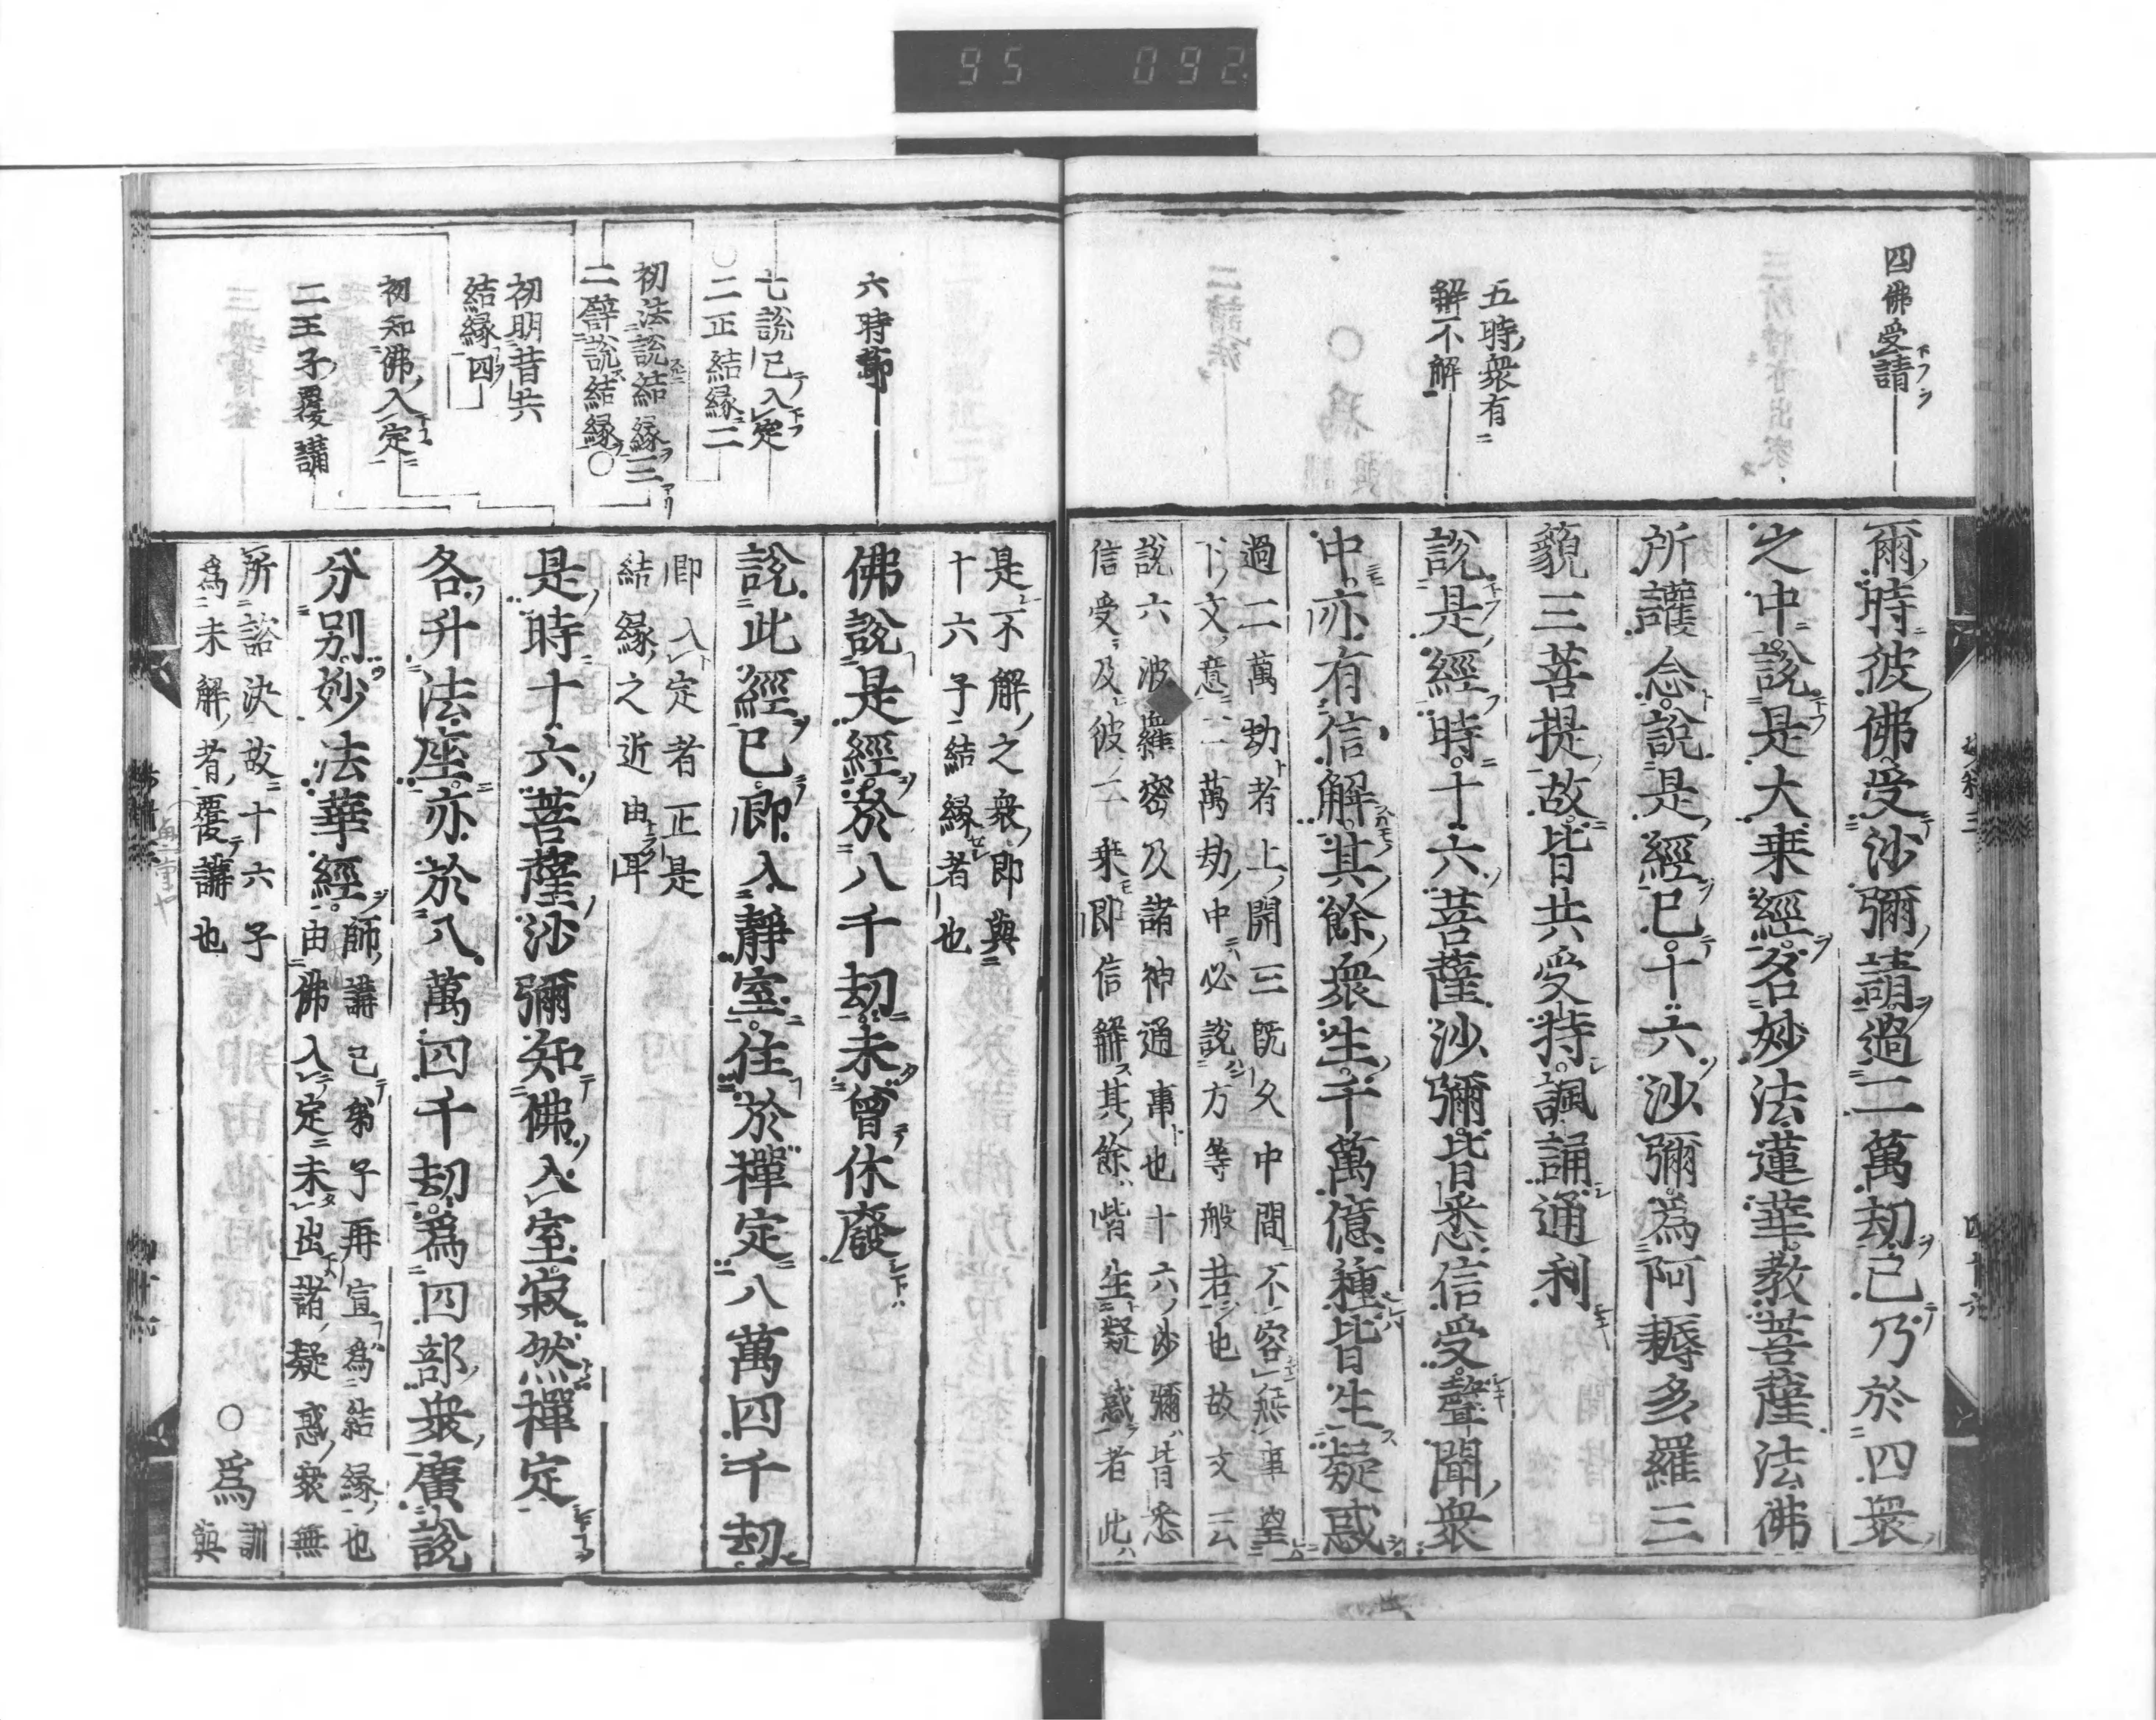 95 092
四佛受請
五時衆有
解不解
爾時彼佛受沙彌請過二萬劫已乃於四衆
之中說是大乗經名妙法蓮華教菩薩法佛
所護念說是經已十六沙彌爲阿耨多羅三
藐三菩提故皆共受持諷誦通利
說是經時十六菩薩沙彌皆悉信受聲聞衆
中亦有信解其餘衆生千萬億種皆生疑惑
過二萬劫者上開三既久中間不容無事望
下文意二萬劫中必說方等般若也故文云
說六波羅密及諸神通事也十六沙彌皆悉
信受及彼二乗即信解其餘皆生疑惑者此
六時節
七説已入定
二正結縁二
初法説結縁三
二譬説結縁
初明昔共
結縁四
初知佛入定
二王子覆講
是不解之衆即與
十六子結縁者也
佛說是經於八千劫未曾休廢
說此經已即入靜室住於禪定八萬四千劫
即入定者正是
結縁之近由耳
是時十六菩薩沙彌知佛入室寂然禪定
各升法座亦於八萬四千劫爲四部衆廣說
分別妙法華經
師講已弟子再宣爲結縁也
由佛入定未出諸疑惑衆無
所諮決故十六子
爲未解者覆講也
○爲
訓
與